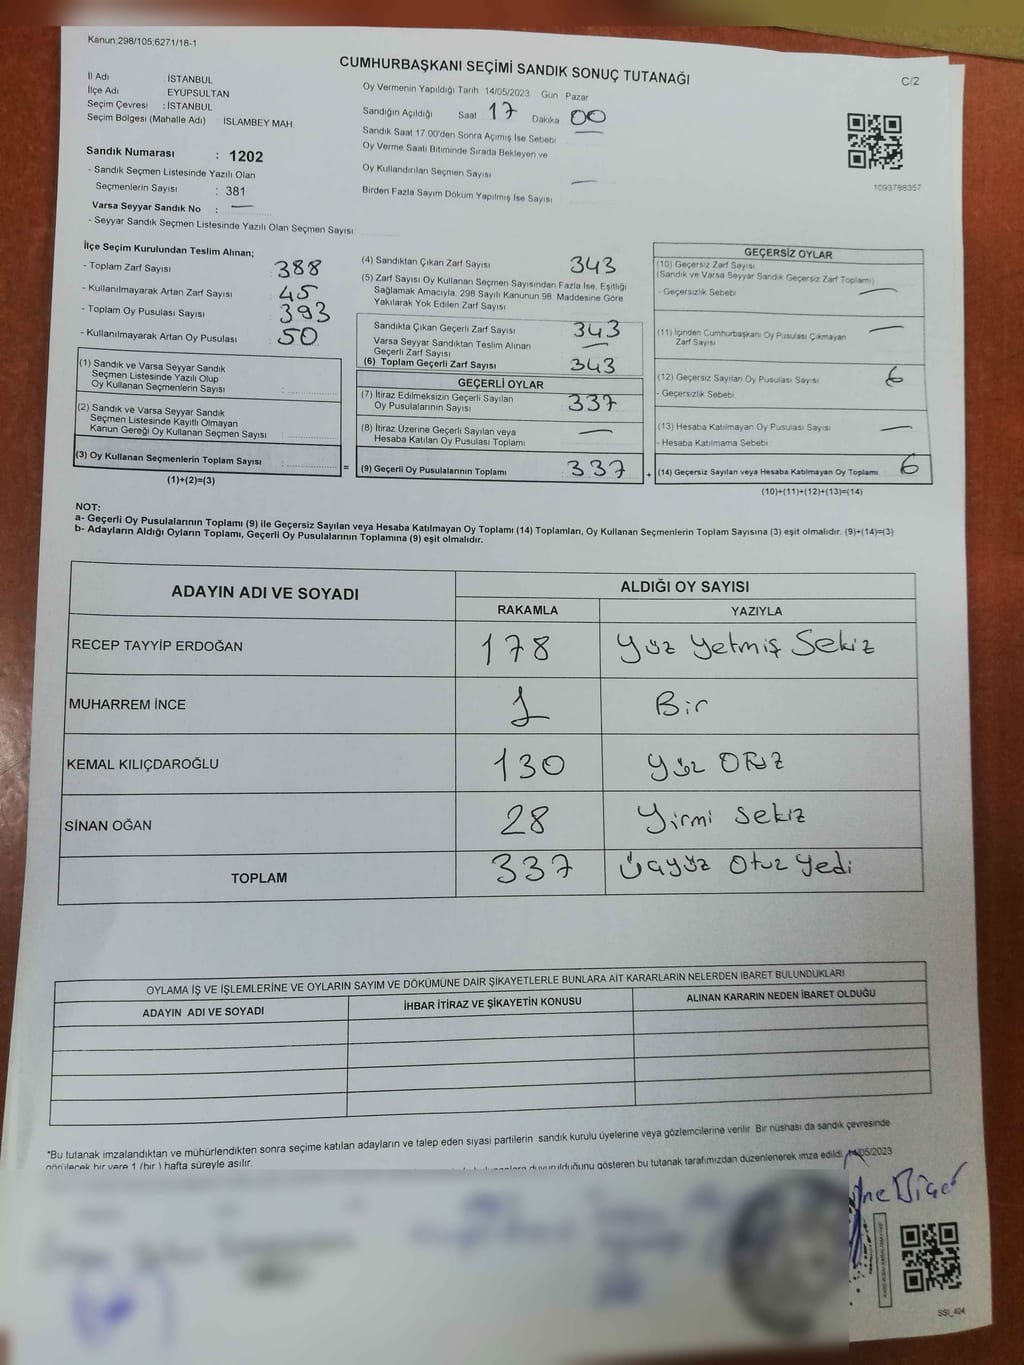 Kanun:298/105,6271/18-1
CUMHURBAŞKANI SEÇİMİ SANDIK SONUÇ TUTANAĞI
C/2
İl Adı : İSTANBUL
İlçe Adı EYÜPSULTAN
Seçim Çevresi : İSTANBUL
Seçim Bölgesi (Mahalle Adı) İSLAMBEY MAH.
Sandık Numarası : 1202
- Sandık Seçmen Listesinde Yazılı Olan
Seçmenlerin Sayısı : 381
Varsa Seyyar Sandık No : —
- Seyyar Sandık Seçmen Listesinde Yazılı Olan Seçmen Sayısı
Oy Vermenin Yapıldığı Tarih 14/05/2023 Gün Pazar
Sandığın Açıldığı Saat 17 Dakika 00
Sandık Saat 17.00'den Sonra Açımış İse Sebebi —
Oy Verme Saati Bitiminde Sırada Bekleyen ve
Oy Kullandırılan Seçmen Sayısı —
Birden Fazla Sayım Döküm Yapılmış İse Sayısı
1093788357
İlçe Seçim Kurulundan Teslim Alınan;
- Toplam Zarf Sayısı 388
- Kullanılmayarak Artan Zarf Sayısı 45
- Toplam Oy Pusulası Sayısı 393
- Kullanılmayarak Artan Oy Pusulası 50
(1) Sandık ve Varsa Seyyar Sandık
Seçmen Listesinde Yazılı Olup
Oy Kullanan Seçmenlerin Sayısı :
(2) Sandık ve Varsa Seyyar Sandık
Seçmen Listesinde Kayıtlı Olmayan
Kanun Gereği Oy Kullanan Seçmen Sayısı :
(3) Oy Kullanan Seçmenlerin Toplam Sayısı :
(1)+(2)=(3)
=
(4) Sandıktan Çıkan Zarf Sayısı 343
(5) Zarf Sayısı Oy Kullanan Seçmen Sayısından Fazla İse, Eşitliği
Sağlamak Amacıyla, 298 Sayılı Kanunun 98. Maddesine Göre
Yakılarak Yok Edilen Zarf Sayısı
Sandıkta Çıkan Geçerli Zarf Sayısı 343
Varsa Seyyar Sandıktan Teslim Alınan —
Geçerli Zarf Sayısı
(6) Toplam Geçerli Zarf Sayısı 343
GEÇERLİ OYLAR
(7) İtiraz Edilmeksizin Geçerli Sayılan 337
Oy Pusulalarının Sayısı
(8) İtiraz Üzerine Geçerli Sayılan veya —
Hesaba Katılan Oy Pusulası Toplamı
(9) Geçerli Oy Pusulalarının Toplamı 337
+
GEÇERSİZ OYLAR
(10) Geçersiz Zarf Sayısı
(Sandık ve Varsa Seyyar Sandık Geçersiz Zarf Toplamı)
- Geçersizlik Sebebi —
(11) İçinden Cumhurbaşkanı Oy Pusulası Çıkmayan —
Zarf Sayısı
(12) Geçersiz Sayılan Oy Pusulası Sayısı 6
- Geçersizlik Sebebi
(13) Hesaba Katılmayan Oy Pusulası Sayısı —
- Hesaba Katılmama Sebebi
(14) Geçersiz Sayılan veya Hesaba Katılmayan Oy Toplamı 6
(10)+(11)+(12)+(13)=(14)
NOT:
a- Geçerli Oy Pusulalarının Toplamı (9) ile Geçersiz Sayılan veya Hesaba Katılmayan Oy Toplamı (14) Toplamları, Oy Kullanan Seçmenlerin Toplam Sayısına (3) eşit olmalıdır. (9)+(14)=(3)
b- Adayların Aldığı Oyların Toplamı, Geçerli Oy Pusulalarının Toplamına (9) eşit olmalıdır.
ADAYIN ADI VE SOYADI ALDIĞI OY SAYISI
RAKAMLA YAZIYLA
RECEP TAYYİP ERDOĞAN 178 Yüz Yetmiş Sekiz
MUHARREM İNCE 1 Bir
KEMAL KILIÇDAROĞLU 130 Yüz Otuz
SİNAN OĞAN 28 Yirmi Sekiz
TOPLAM 337 Üçyüz Otuz Yedi
OYLAMA İŞ VE İŞLEMLERİNE VE OYLARIN SAYIM VE DÖKÜMÜNE DAİR ŞİKAYETLERLE BUNLARA AİT KARARLARIN NELERDEN İBARET BULUNDUKLARI
ADAYIN ADI VE SOYADI İHBAR İTİRAZ VE ŞİKAYETİN KONUSU ALINAN KARARIN NEDEN İBARET OLDUĞU
*Bu tutanak imzalandıktan ve mühürlendikten sonra seçime katılan adayların ve talep eden siyasi partilerin sandık kurulu üyelerine veya gözlemcilerine verilir. Bir nüshası da sandık çevresinde
görülecek bir yere 1 (bir) hafta süreyle asılır.
duyurulduğunu gösteren bu tutanak tarafımızdan düzenlenerek imza edildi. 05/2023
SSİ_404